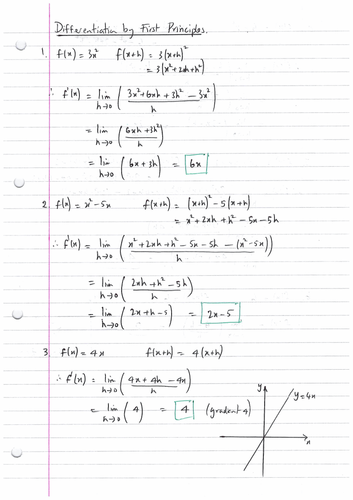 Differentiation by First Principles.
1. f(x) = 3x² f(x+h) = 3(x+h)²
= 3(x²+2xh+h²)
∴ f'(x) = lim h→0 (3x²+6xh+3h²-3x² / h)
= lim h→0 (6xh+3h² / h)
= lim h→0 (6x+3h) = 6x
2. f(x) = x²-5x f(x+h) = (x+h)²-5(x+h)
= x²+2xh+h²-5x-5h
∴ f'(x) = lim h→0 (x²+2xh+h²-5x-5h-(x²-5x) / h)
= lim h→0 (2xh+h²-5h / h)
= lim h→0 (2x+h-5) = 2x-5
3 f(x) = 4x f(x+h) = 4(x+h)
∴ f'(x) = lim h→0 (4x+4h-4x / h)
= lim h→0 (4) = 4 (gradient 4)
y
y=4x
x